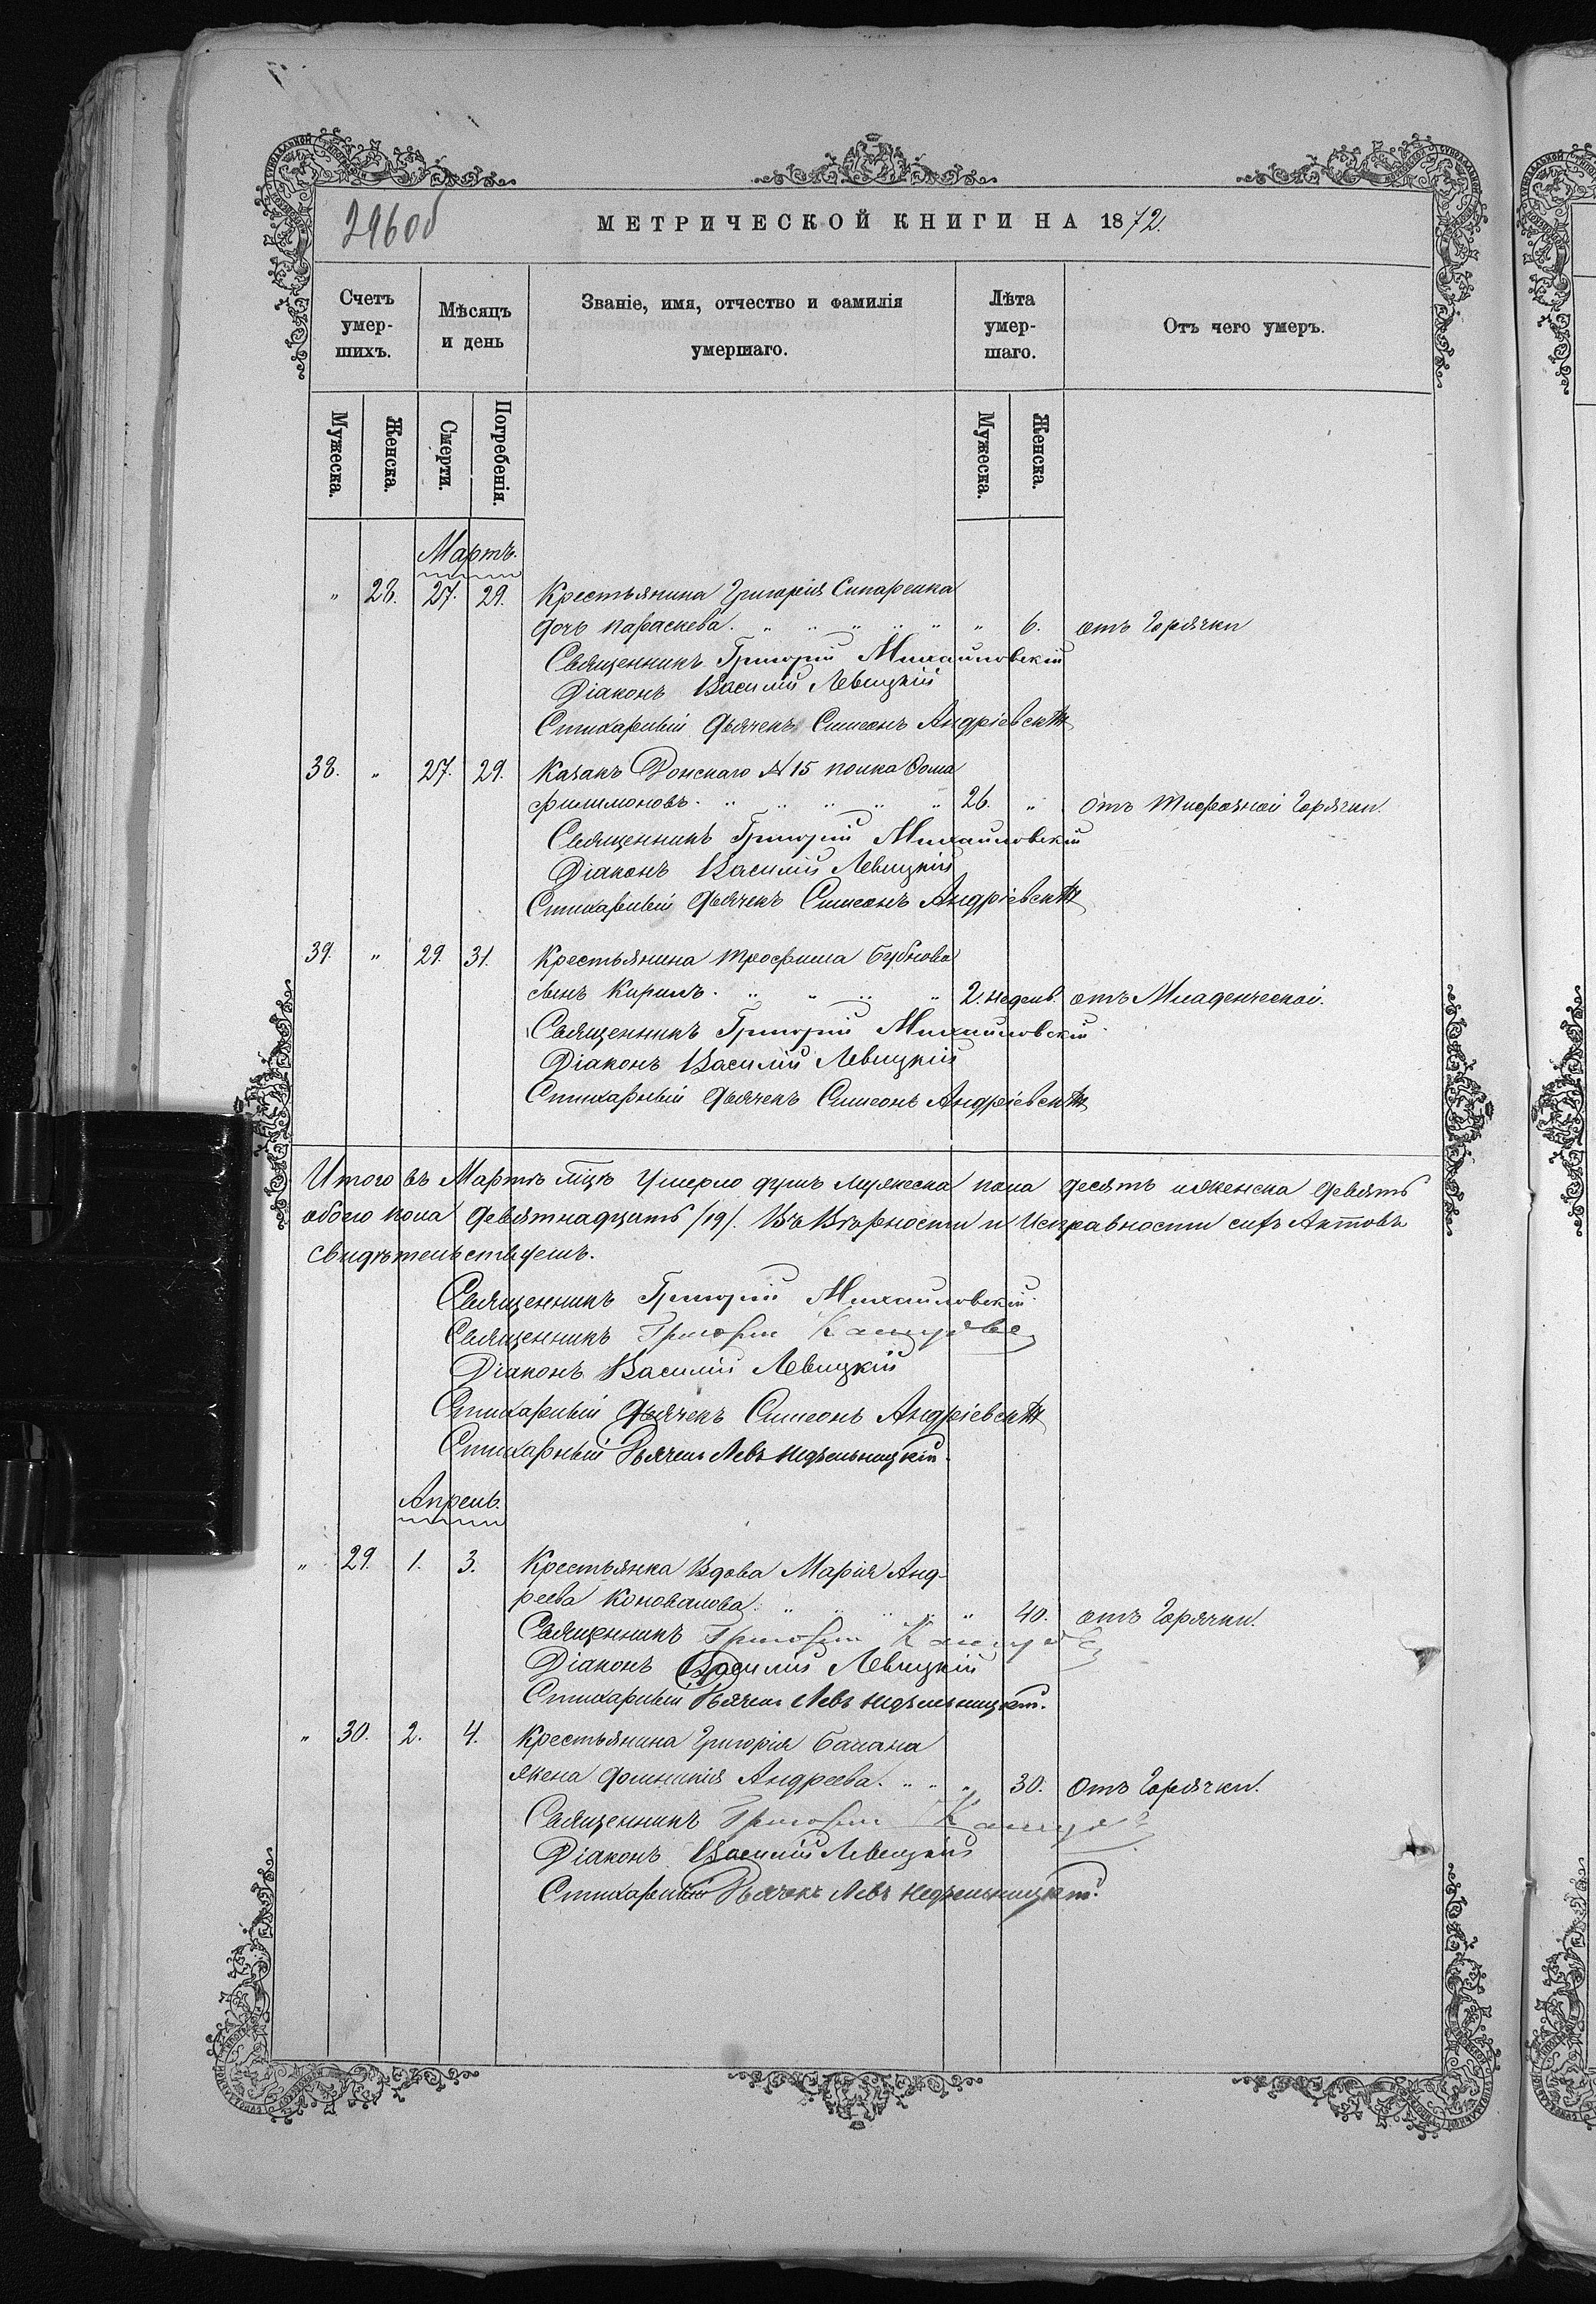 296об
МЕТРИЧЕСКОЙ КНИГИ НА 1872.
Счетъ умер-шихъ.
Мѣсяцъ и день
Званіе, имя, отчество и фамилія умершаго.
Лѣта умер-шаго.
Отъ чего умеръ.
Мужеска.
Женска.
Смерти.
Погребенія.
Мужеска.
Женска.
Мартъ.
" 28. 27. 29. Крестьянина Григорія Сипаренка
дочь Параскева. " " " " " " 6. отъ Горячки
Священникъ Григорій Михайловскій
Діаконъ Василій Левицкій
Стихарный Дьячекъ Симеонъ Андріевскій
38. " 27. 29. Казакъ Донскаго №15 полка Фома
Филимоновъ. " " " " " 26. " Отъ Тифозной Горячки.
Священникъ Григорій Михайловскій
Діаконъ Василій Левицкій
Стихарный Дьячекъ Симеонъ Андріевскій
39. " 29. 31. Крестьянина Трофима Бубнова
сынъ Кирилъ. " " " " 2. недель. отъ Младенческой.
Священникъ Григорій Михайловскій
Діаконъ Василій Левицкій
Стихарный Дьячекъ Симеонъ Андріевскій
Итого въ Мартѣ мцѣ Умерло душъ мужеска пола десять и женска девять
обоего пола девятнадцать /19/. Въ Вѣрности и Исправности сихъ Актовъ
свидѣтельствуемъ.
Священникъ Григорій Михайловскій
Священникъ Григорій
Діаконъ Василій Левицкій
Стихарный Дьячекъ Симеонъ Андріевскій
Стихарный Дьячекъ Левъ Недѣльницкій.
Апрель.
" 29. 1. 3. Крестьянка Вдова Марія Анд-
реева Коновалова. " " " " " 40. отъ Горячки.
Священникъ Григорій
Діаконъ Василій Левицкій
Стихарный Дьячекъ Левъ Недѣльницкій.
" 30. 2. 4. Крестьянина Григорія Балана
жена Домникія Андреева. " " " 30. Отъ Горячки.
Священникъ Григорій
Діаконъ Василій Левицкій
Стихарный Дьячекъ Левъ Недѣльницкій.